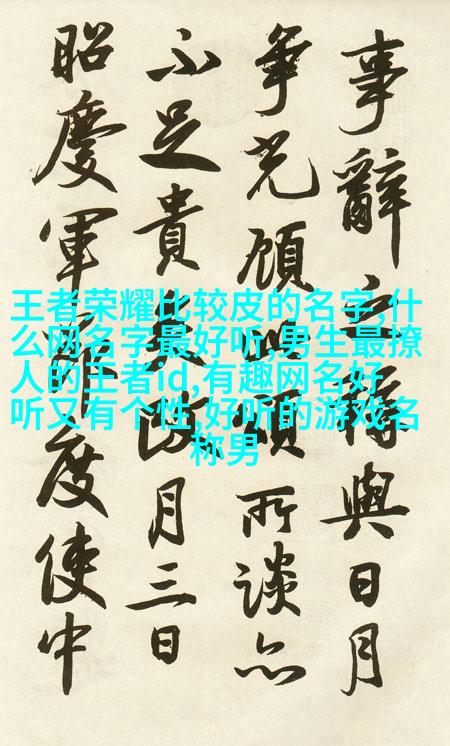 王者荣耀比较皮的名字,什
么网名字最好听,男生最撩
人的王者id,有趣网名好
听又有个性,好听的游戏名
称男
事辭之稱與日月
爭光顧此頌所談亦
不足貴矣月三日
昭慶軍節度使中